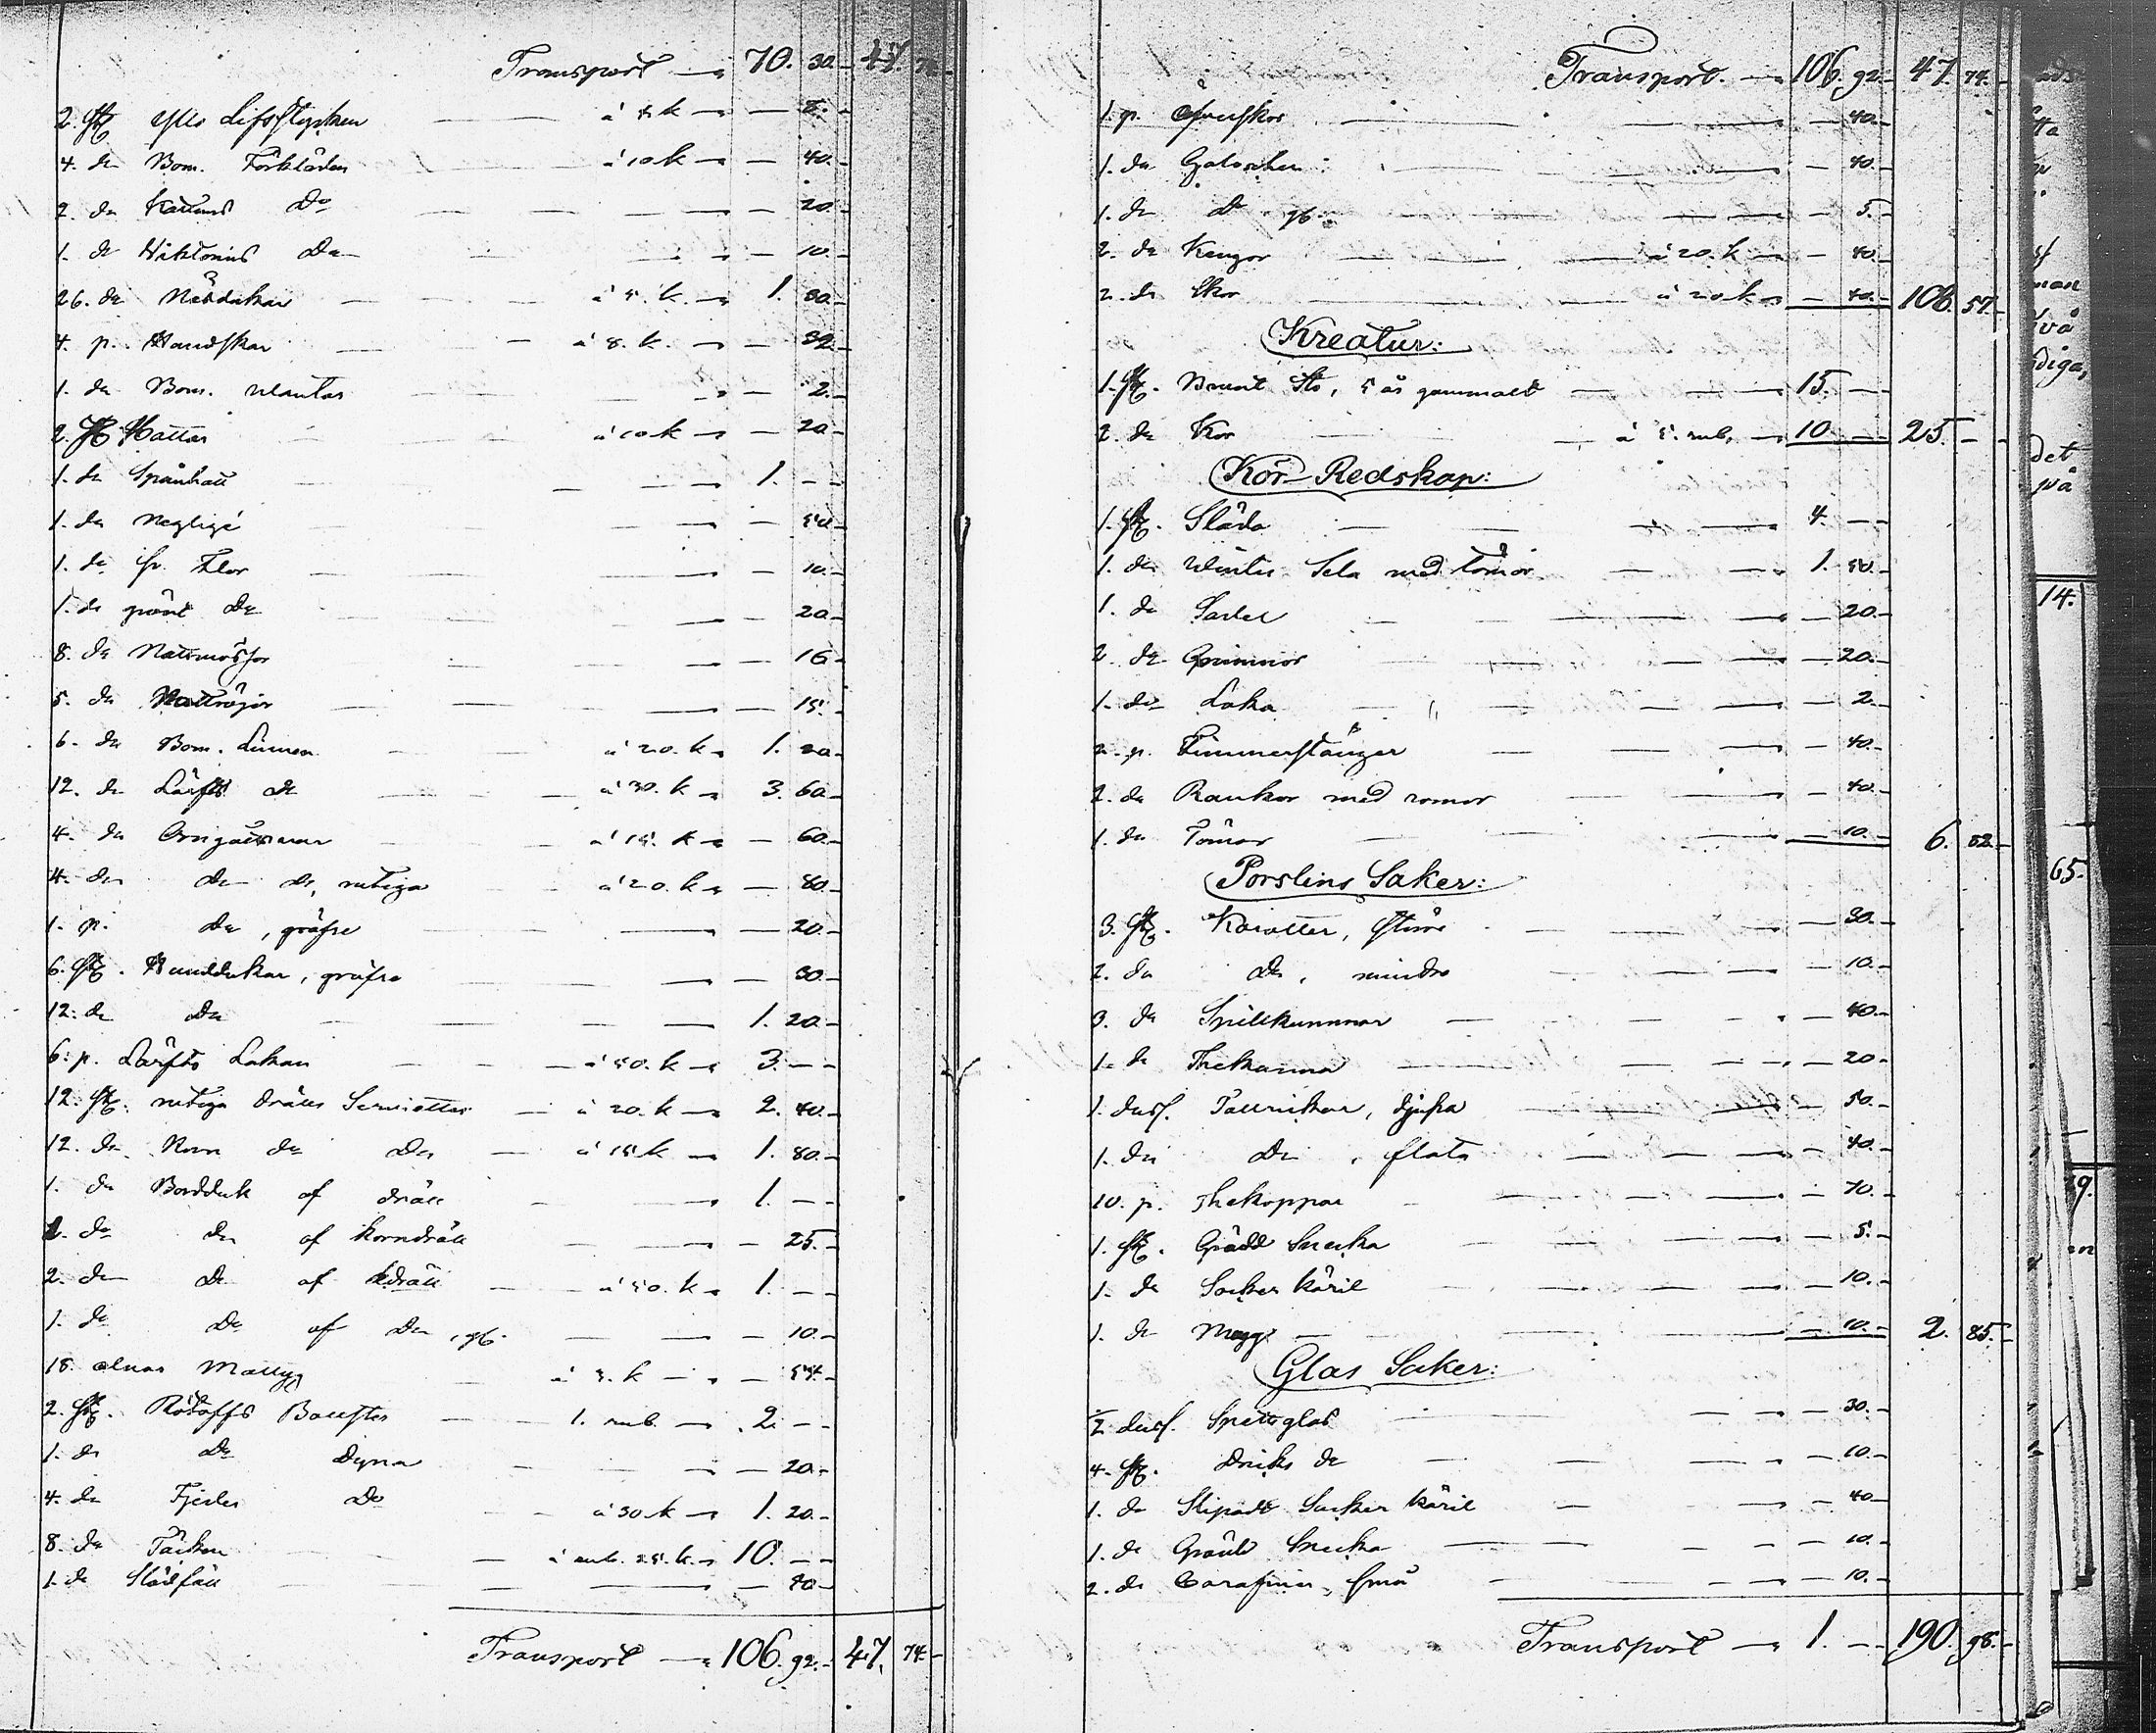 Transport — 70. 30. 47. 74.
2. St. Lifstycken à k — 8.
4. do Bom. Förkläden à 10 k — 40.
2. do Kattuns Do — 20.
1. do Do — 10.
26. do Näsdukar à 5. k. — 1. 30.
4. p. Handskar à 8. k. — 32.
1. do Bom. Vantar — 2.
2. St. Hattar à 10 k — 20
1. do Spånhatt — 1. —
1. do Negligé — 50
1. do sv. Flor — 10.
1. do grönt Do — 20.
8. do Nattmössor — 16
5. do Nattröjor — 15.
6. do Bom. Linnen à 20. k — 1. 20.
12. do Lärfts do à 30. k — 3. 60.
4. do Örngåttsvar à 15. k — 60.
4. do do do, rutiga à 20. k — 80.
1. p. do, gröfre — 20.
6. St. Handdukar, gröfre — 30.
12. do Do — 1. 20.
6. p. Lärfts Lakan à 50. k — 3. —
12. St. rutiga dräll Servietter à 20. k — 2. 40.
12. do Korn do Do à 15 k — 1. 80.
1. do Bordduk af dräll — 1. —
1. do do af korndräll — 25.
2. do Do af dräll à 50. k — 1. —
1. do Do af Do, gl. — 10.
18. alnar Mattyg à 3. k — 54.
2. St. Bolster 1. rub. — 2. —
1. do Do Dyna — 20.
4. do Fjeder Do à 30 k — 1. 20.
8. do Täcken à rub. 25. k. — 10. —
1. do Slädfäll — 40
Transport — 106. 92. 47. 74.
Transport. — 106. 92. 47. 74.
1. p. — 40.
1. do Galoscher — 40.
1. do D gl. — 5.
2. do Kengor à 20. k — 40.
2. do Skor à 20 k — 40. 108. 57.
Kreatur:
1. St. Brunt Sto, 5 år gammalt — 15. —
2. do Kor à 5. rub. — 10. — 25. —
Kör-Redskap:
1. St. Släda — 4. —
1. do Vinter Sela med tömor — 1. 50.
1. do Sadel — 20.
2. do Grimmor — 20.
1. do Loka — 2.
2. p. Timmerstänger — 40.
2. do Rankor med romor — 40.
1. do Tömar — 10. 6. 82.
Porslins Saker:
3. St. Karotter, större — 30.
2. do Do, mindre — 10.
3. do Spillkummar — 40.
1. do Thekanna — 20
1. duss. Tallrikar, djupa — 50.
1. do Do, flata — 40.
10. p. Thekoppar — 70.
1. St. Grädd Snecka — 5.
1. do Socker käril — 10.
1. do Mugg — 10. 2. 85.
Glas Saker:
½ duss. Spetsglas — 30.
4. St. Dricks do — 10.
1. do Slipadt Socker käril — 40
1. do Grädd Snecka — 10.
2. do Carafiner, små — 10.
Transport — 1. — 190. 98.